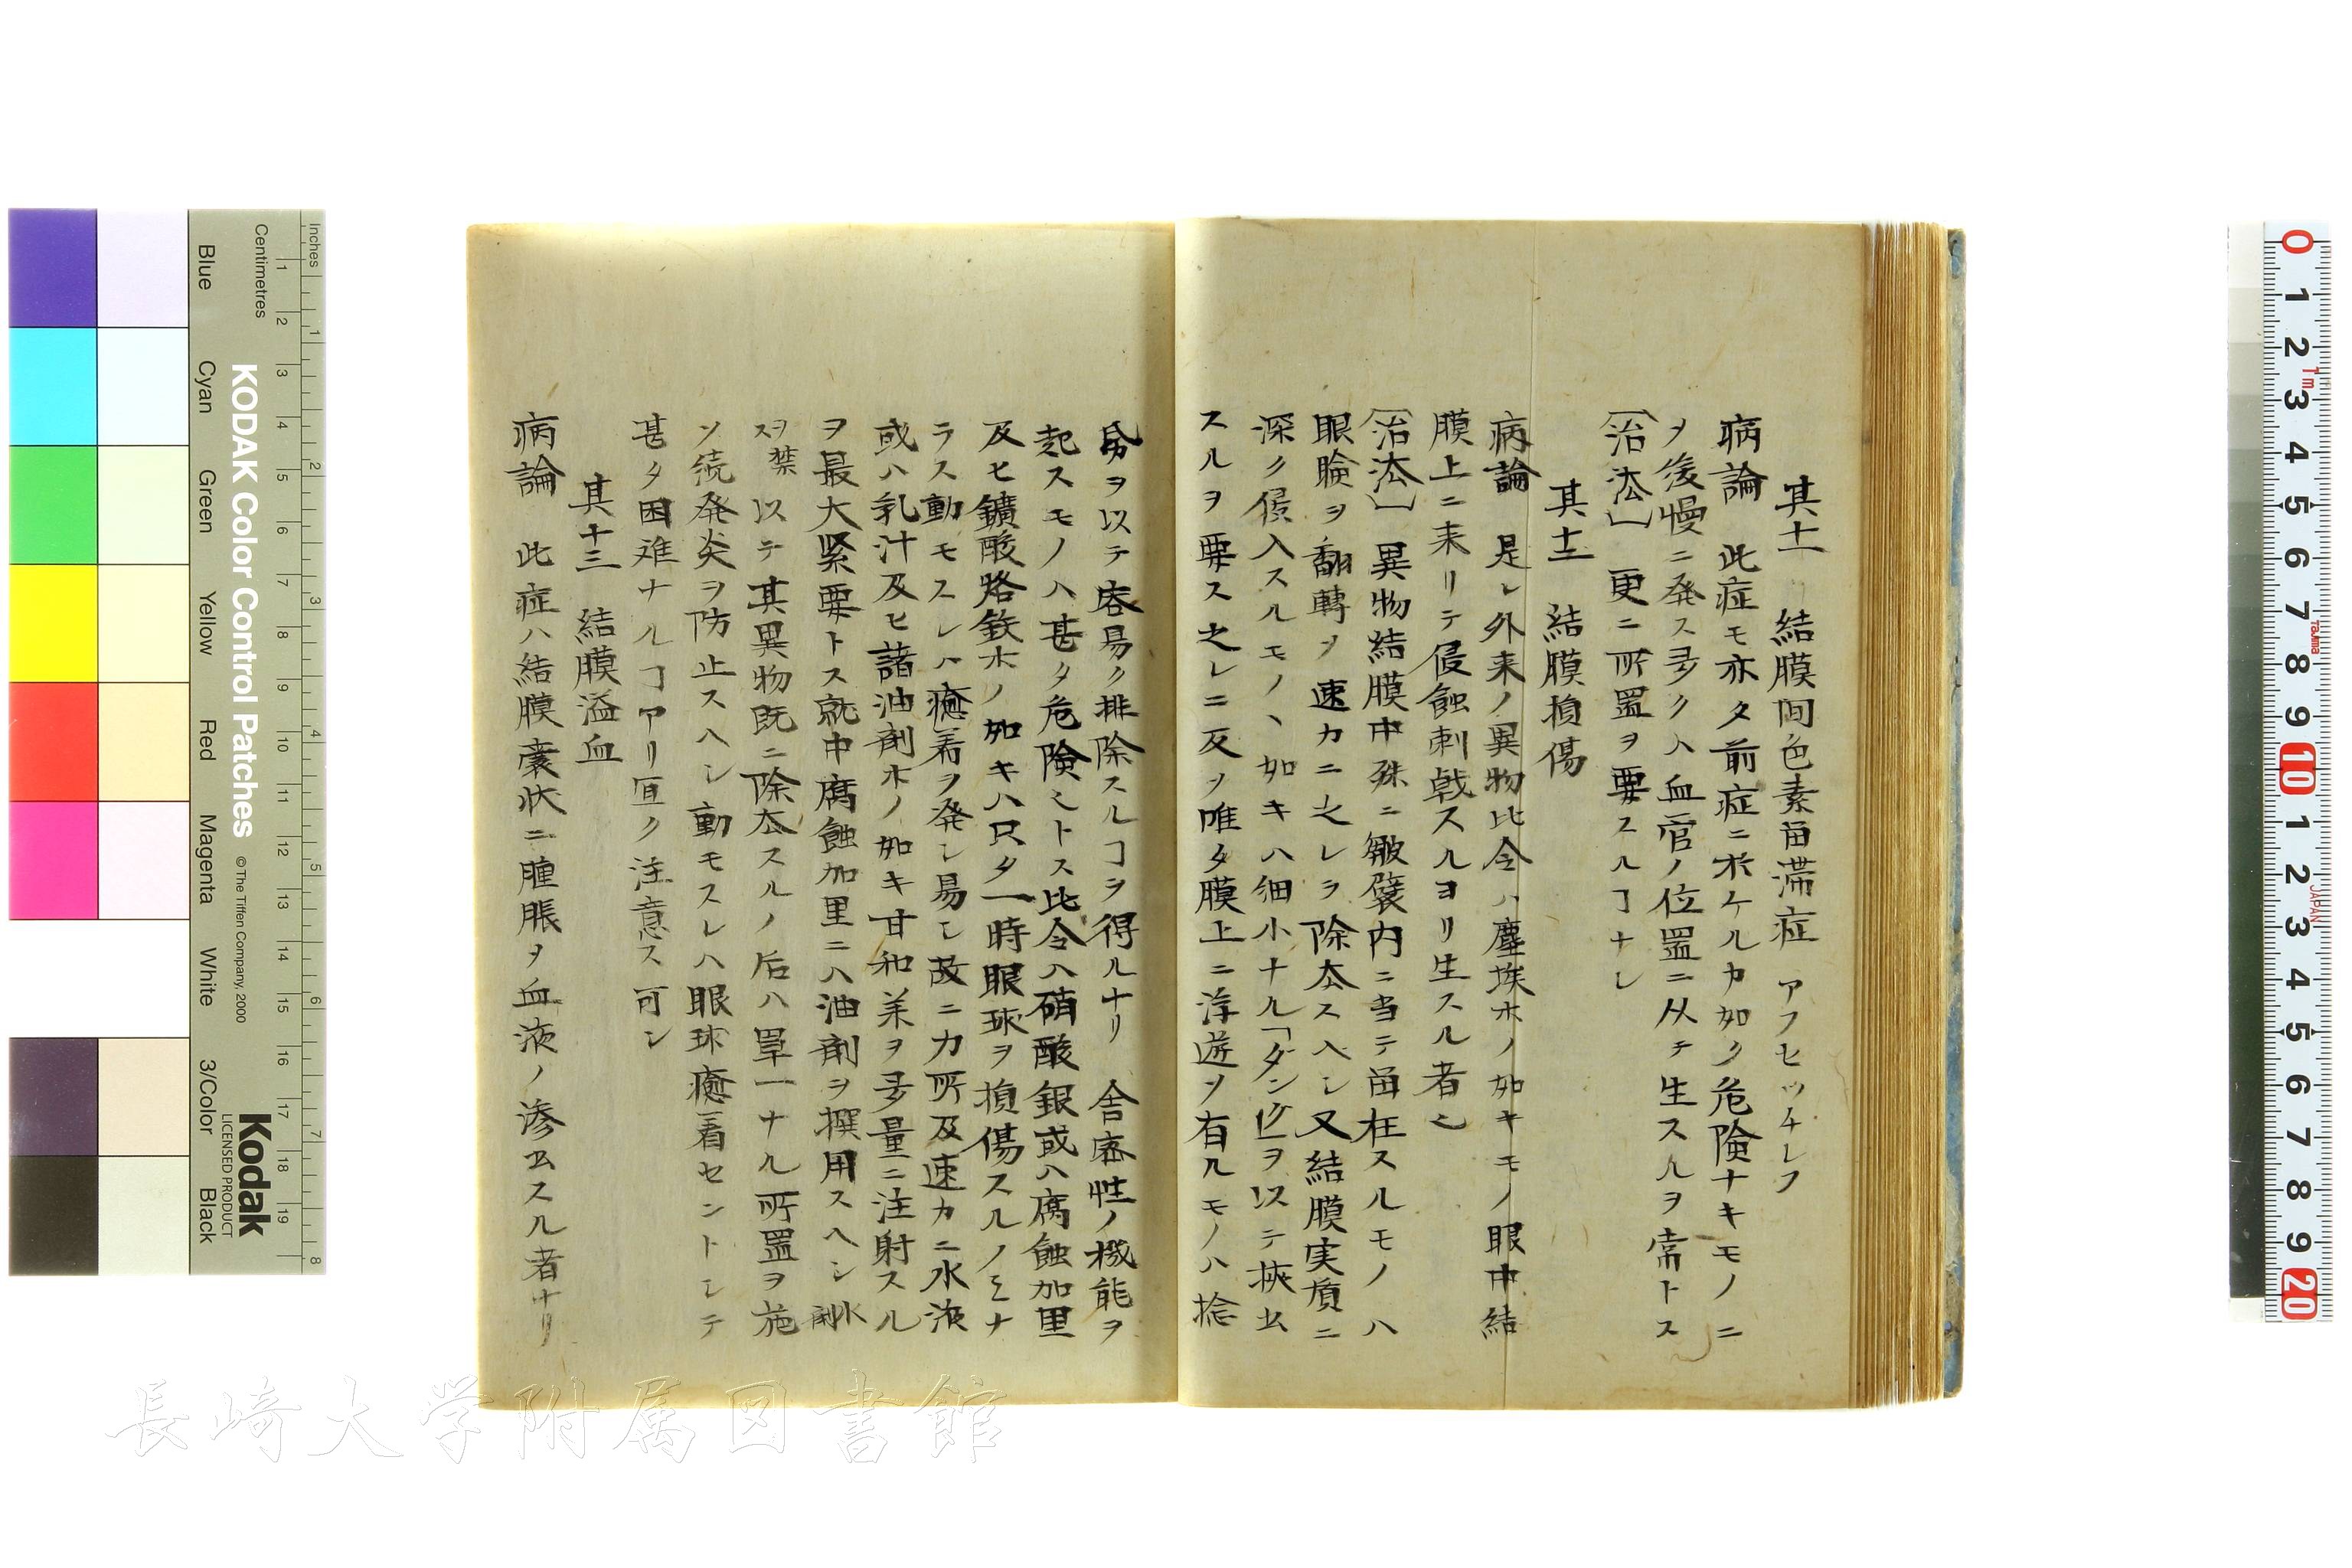 其十一 結膜間色素畄滞症 アフセツチレフ
病論 此症モ亦タ前症ニ於ケルカ如ク危険ナキモノニ
ヲ後慢ニ発ス多クハ血管ノ位置ニ从テ生スルヲ常トス
〔治法〕 更ニ所置ヲ要スルヿナレ
其十二 結膜損傷
病論 是レ外来ノ異物比令ハ塵埃ホノ如キモノ眼中結
膜上ニ来リテ侵蝕刺戟スルヨリ生スル者之
〔治法〕 異物結膜中殊ニ皺襞内ニ当テ畄在スルモノハ
眼瞼ヲ翻轉ヲ速カニ之レヲ除去スヘシ又結膜実質ニ
深ク侵入スルモノヽ如キハ細小ナル「ダンクヒヲ以テ挾出
スルヲ要ス之レニ反ヲ唯タ膜上ニ浮遊ヲ有ルモノハ捻
帛ヲ以テ容易ク排除スルヿヲ得ルナリ 舎密性ノ機能ヲ
起スモノハ甚タ危険之トス比令ハ硝酸銀或ハ腐蝕加里
及ヒ鑛酸烙鉄ホノ如キハ只タ一時眼球ヲ損傷スルノミナ
ラス動モスレハ癒着ヲ発シ易シ故ニ力所及速カニ水液
或ハ乳汁及ヒ諸油剤ホノ如キ甘和羊ヲ多量ニ注射スル
ヲ最大緊要トス就中腐蝕加里ニハ油剤ヲ撰用スヘシ水剤
ヲ禁ス 以テ其異物既ニ除去スルノ后ハ單一ナル所置ヲ施
ソ続発炎ヲ防止スヘシ動モスレハ眼球癒着セントシテ
甚タ困难ナルヿアリ宜ク注意ス可シ
其十三 結膜溢血
病論 此症ハ結膜嚢状ニ腫脹ヲ血液ノ滲出スル者ナリ
KODAK Color Control Patches
© The Tiffen Company, 2000
Kodak
LICENSED PRODUCT
Inches
Centimetres
Blue Cyan Green Yellow Red Magenta White 3/Color Black
長崎大学附属図書館